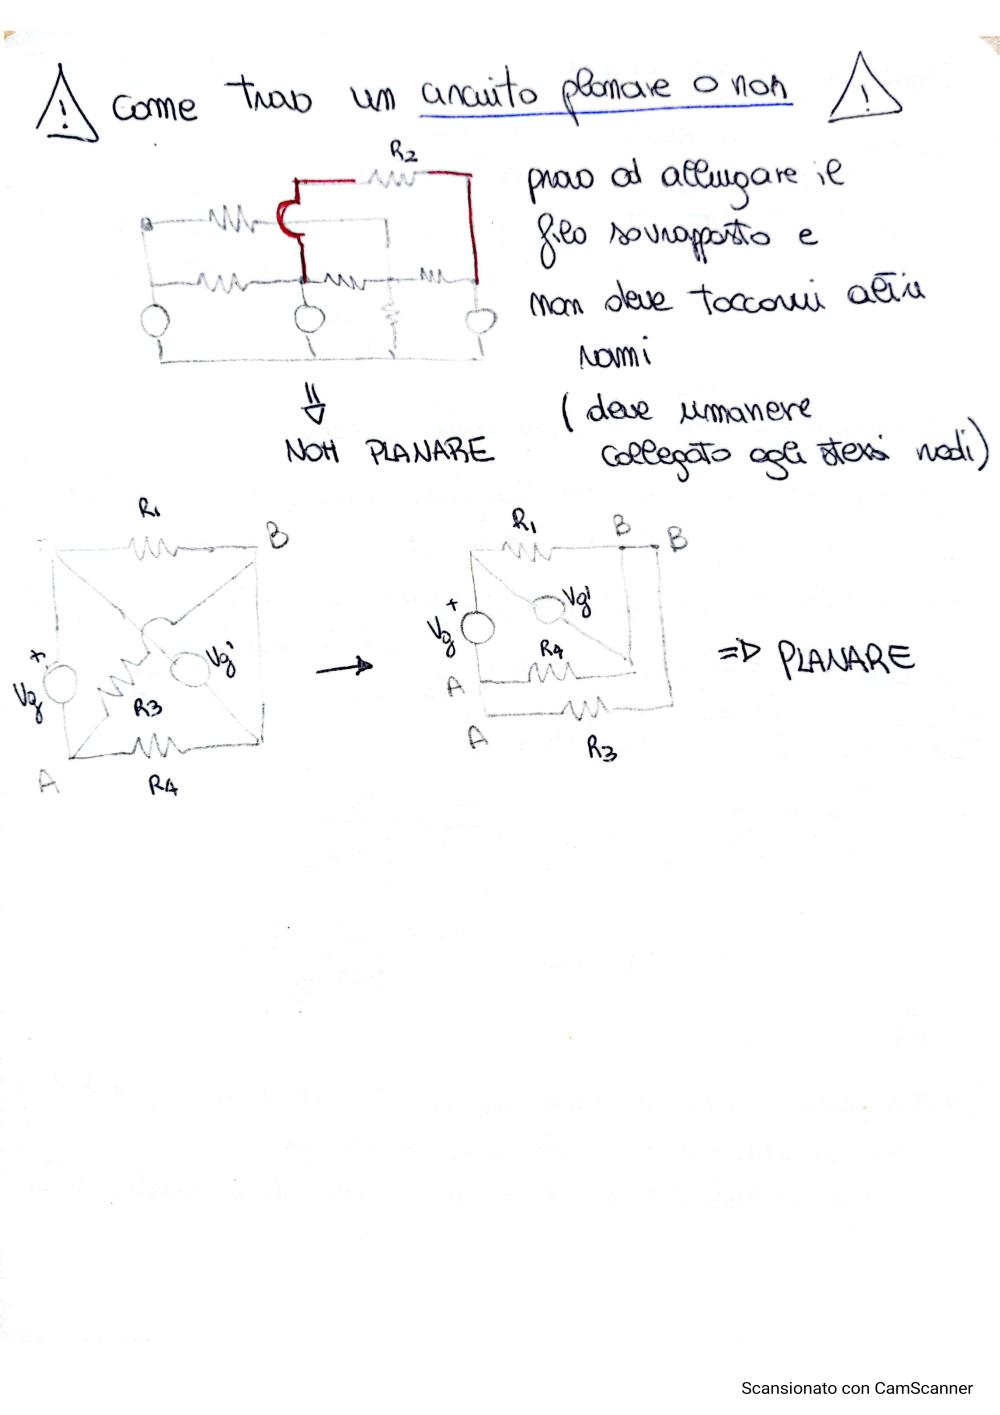 ! Come trovo un circuito planare o non !
R2
provo ad allungare il
filo sovrapposto e
non deve toccarmi altri
rami
NON PLANARE
( deve rimanere
collegato agli stessi nodi)
R1
B
+
Vg
Vg'
R3
A
R4
R1
B
B
+
Vg
Vg'
R4
A
A
R3
=> PLANARE
Scansionato con CamScanner